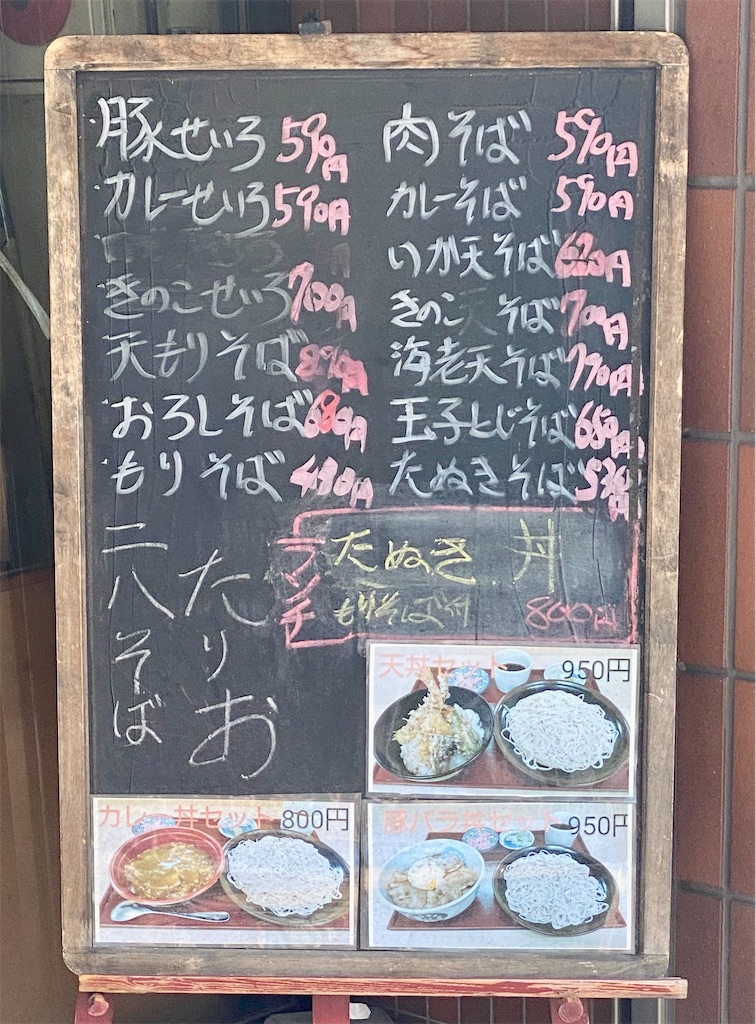 豚せいろ 590円
カレーせいろ 590円
きのこせいろ 700円
天もりそば
おろしそば 680円
もりそば 480円
肉そば 590円
カレーそば 590円
いか天そば 620円
きのこ天そば
海老天そば 790円
玉子とじそば 650円
たぬきそば
ランチ
たぬき丼
もりそば付 800円
二八そば
たりお
天丼セット 950円
カレー丼セット 800円
豚バラ丼セット 950円